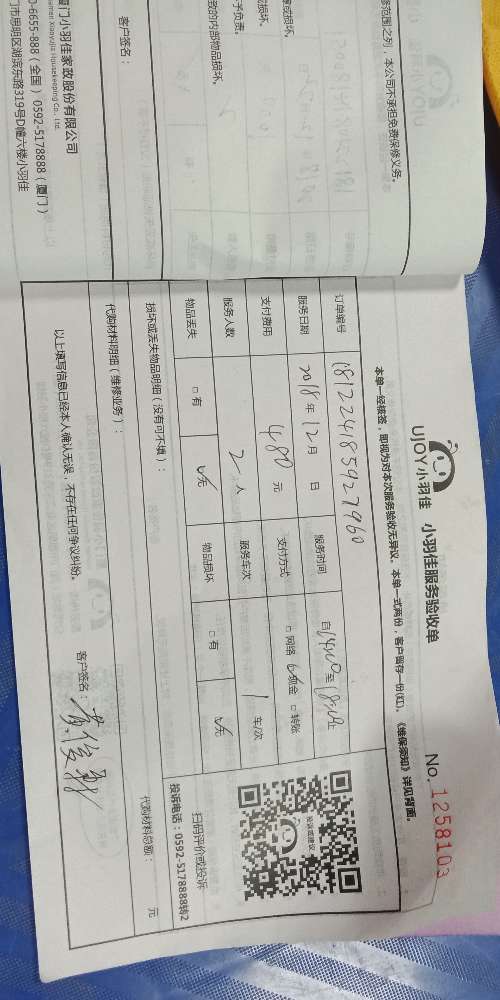 UJOY小羽佳 小羽佳服务验收单 No. 1258103
本单一经接签，即视为对本次服务验收无异议。本单一式两份，客户留存一份(红)。《维保须知》详见背面。
订单编号
服务日期 2018年12月 日 服务时间
支付费用 480元 支付方式 □网络 ☑现金 □转账
服务人数 2人 服务车次 1车/次
物品丢失 □有 ☑无 物品损坏 □有 ☑无
扫码评价或投诉
投诉电话：0592-5178888转2
投诉或建议
损坏或丢失物品明细（没有可不填）：
代购材料明细（维修业务）： 代购材料总额： 元
以上填写信息已经本人确认无误，不存在任何争议纠纷。 客户签名：
修范围之列，本公司不承担免费保修义务。
或损坏。
予负责。
致的内部物品损坏。
客户签名：
厦门小羽佳家政股份有限公司
Xiamen Xiaoyujia Housekeeping Co., Ltd.
0-6655-888（全国） 0592-5178888（厦门）
门市思明区湖滨东路319号D幢六楼小羽佳